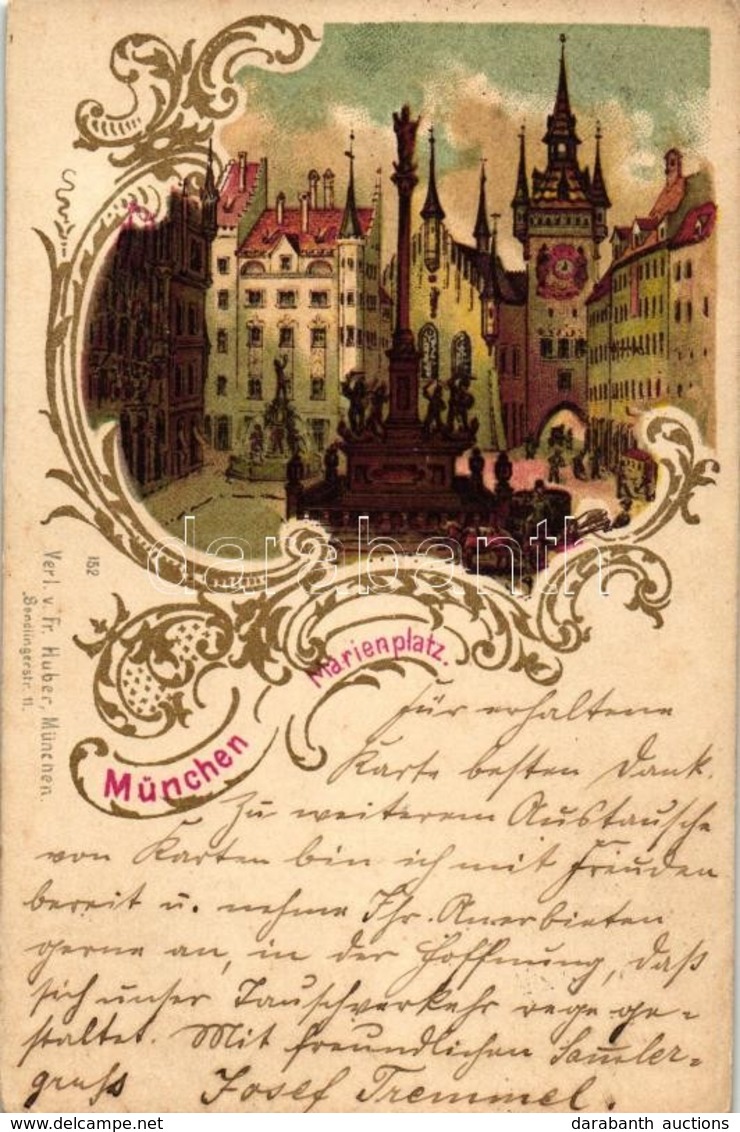 darabanth
152
Verl. v. Fr. Huber, München.
Sendlingerstr. 11.
Marienplatz.
München
Für erhaltene
Karte besten Dank.
Zu weiterem Austausche
von Karten bin ich mit Freuden
bereit u. nehme Ihr Anerbieten
gerne an, in der Hoffnung, daß
sich unser Tauschverkehr rege ge-
staltet. Mit freundlichen Sammler-
gruß Josef Tremmel.
darabanth auctions